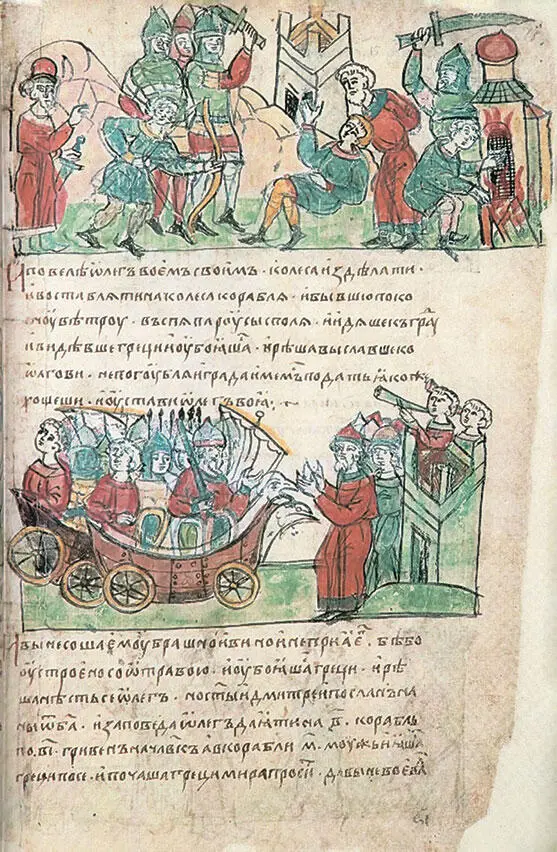 И повелѣ ѡлегъ воемъ своимъ · колеса издѣлати ·
и воставляти на колеса корабля · и бывшю поко
сноу вѣтроу · въспя пароусы с поля · и идяше къ граⷣ
и видѣвше греци и оубоꙗшаⷭ · и рѣша выславше ко
ѡлгови · не погоубляи града имемъ подать ꙗкоже
хощеши · и оустави ѡлегъ воя ·
И вынесоша емоу брашно и вино и не приꙗ еⷢ · бѣ бо
оустроено со ѿравою · и оубоꙗшаⷭ греци · и рѣ
ша нѣсть се ѡлегъ · но стыи дмитреи посланъ на
ны ѿ ба · и заповѣда ѡлегъ даꙗти на в҃ · корабль
по в҃і · гривенъ на члвкъ а в корабли м҃ · моужь и ꙗшаⷭ
греци по се · и почаша греци мира просиⷮ · дабы не воевал